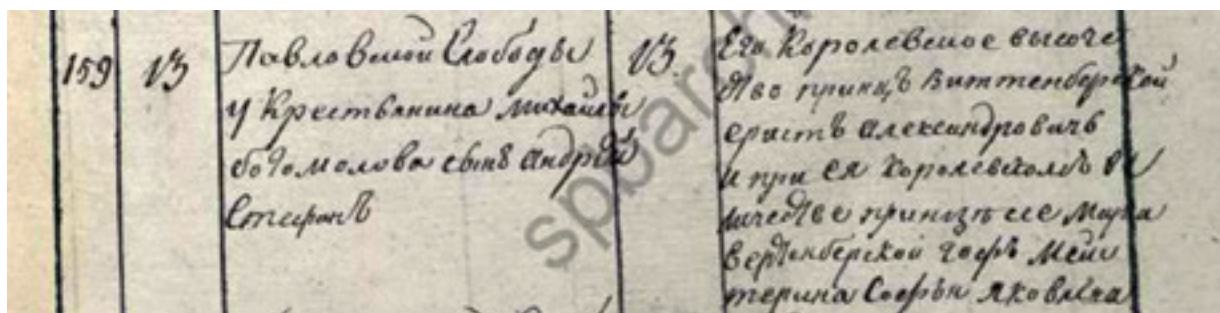 159
13
Павловской Слободы
у Крестьянина михайлы
богомолова сынъ андрей
Стефанъ
13.
Его Королевское высоче
ство принцъ виттенберской
ернстъ александровичь
и при ея королевскомъ вы
сочестве принцессе Марiа
вертенберской гофъ мейс
терина Софья яковлева
spbarch